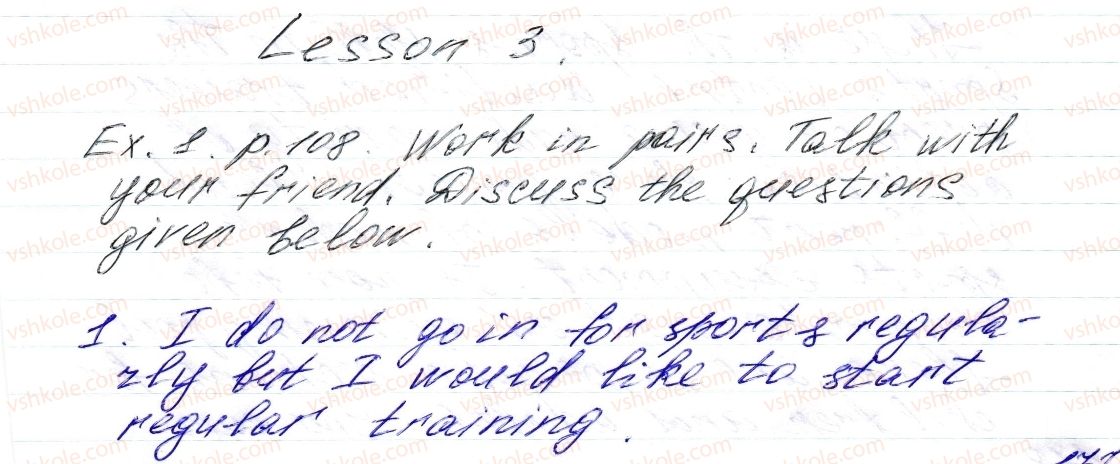 Lesson 3.
Ex. 1. p. 108. Work in pairs. Talk with
your friend. Discuss the questions
given below.
1. I do not go in for sports regula-
rly but I would like to start
regular training.